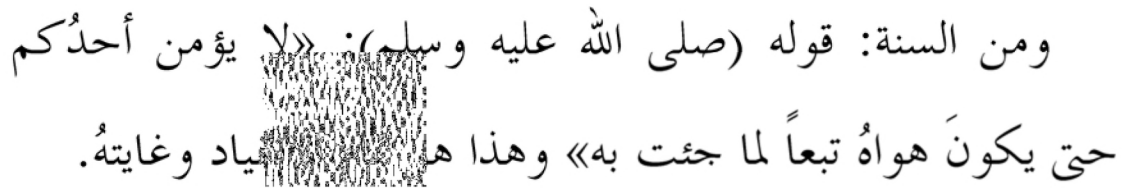 ومن السنة: قوله (صلى الله عليه وسلم): «لا يؤمن أحدُكم
حتى يكونَ هواهُ تبعاً لما جئت به» وهذا وغايتهُ.